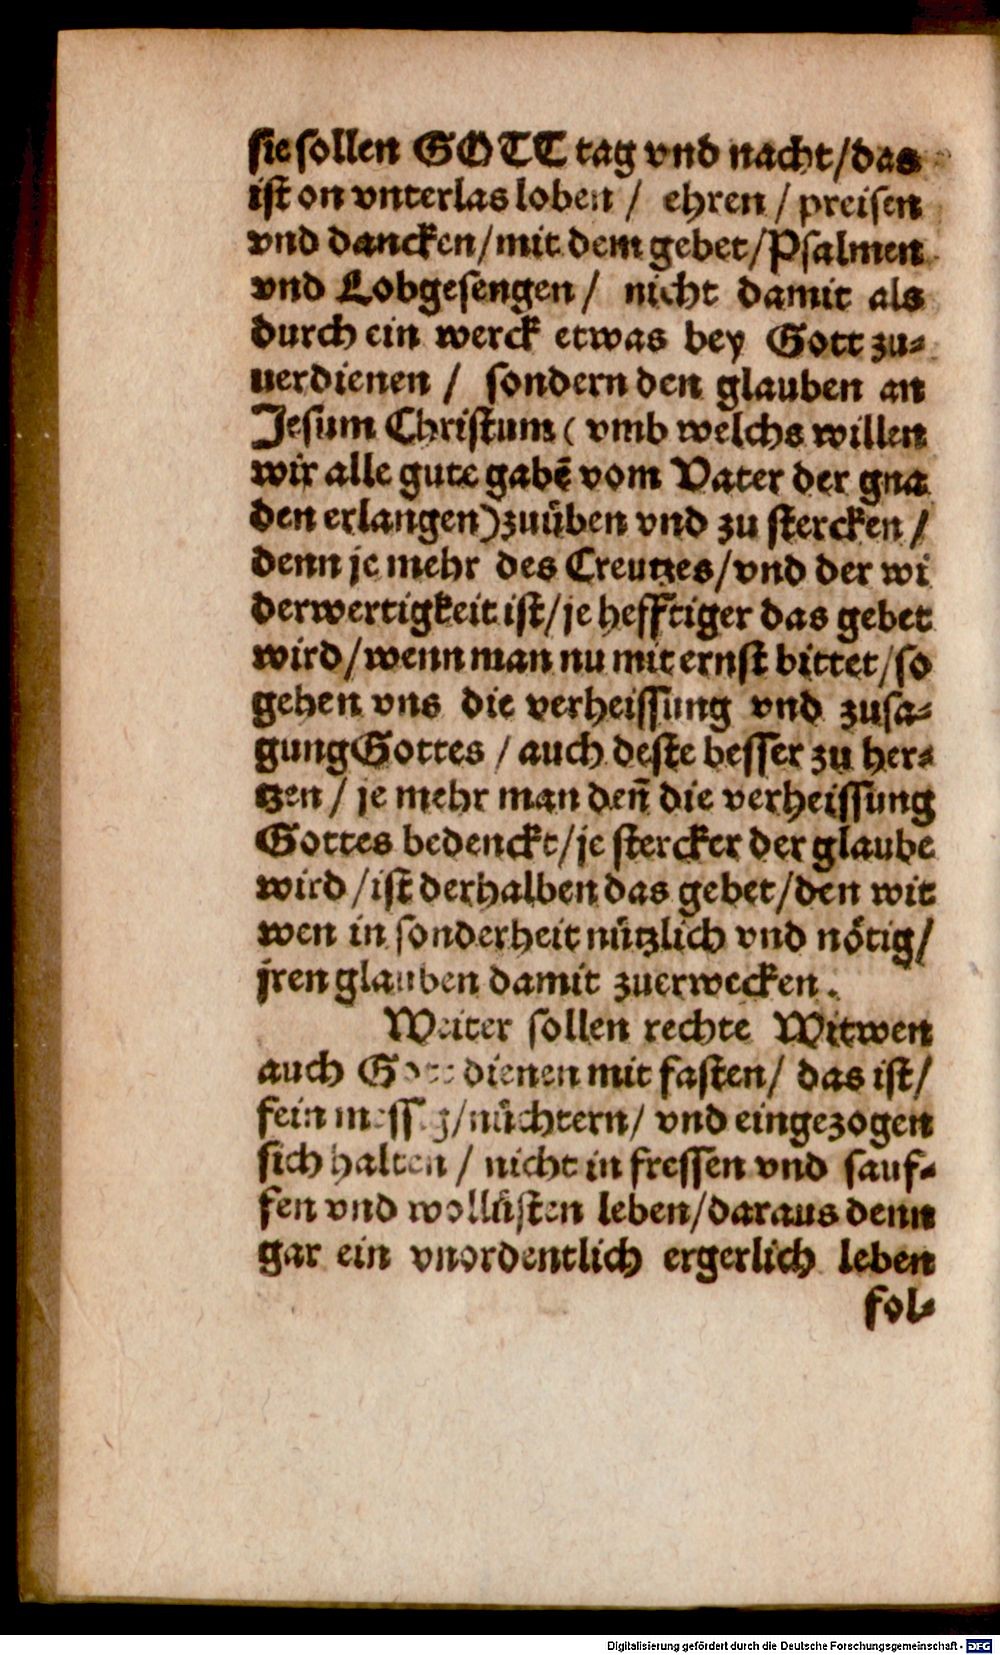 sie sollen GOTT tag vnd nacht/das
ist on vnterlas loben / ehren / preisen
vnd dancken/mit dem gebet/Psalmen
vnd Lobgesengen/ nicht damit als
durch ein werck etwas bey Gott zu-
uerdienen / sondern den glauben an
Jesum Christum ( vmb welchs willen
wir alle gute gabē vom Vater der gna
den erlangen)zuüben vnd zu stercken /
denn je mehr des Creutzes/vnd der wi
derwertigkeit ist/je hefftiger das gebet
wird/wenn man nu mit ernst bittet/so
gehen vns die verheissung vnd zusa-
gung Gottes / auch deste besser zu her-
tzen / je mehr man deñ die verheissung
Gottes bedenckt/je stercker der glaube
wird /ist derhalben das gebet/den wit
wen in sonderheit nützlich vnd nötig/
jren glauben damit zuerwecken.
Weiter sollen rechte Witwen
auch Gott dienen mit fasten/ das ist/
fein messig/nüchtern/ vnd eingezogen
sich halten / nicht in fressen vnd sauf-
fen vnd wollüsten leben/daraus denn
gar ein vnordentlich ergerlich leben
fol-
Digitalisierung gefördert durch die Deutsche Forschungsgemeinschaft - DFG